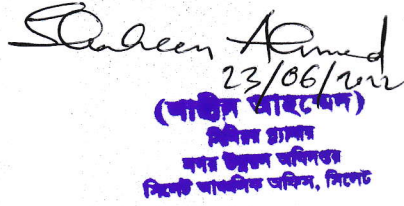 Shaheen Ahmed
23/06/2022
(শাহীন আহম্মেদ)
সিনিয়র প্ল্যানার
নগর উন্নয়ন অধিদপ্তর
সিলেট আঞ্চলিক অফিস, সিলেট